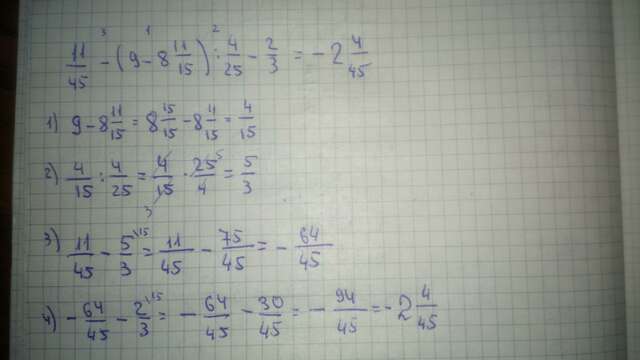 3 1 2
11/45 - (9 - 8 11/15) : 4/25 - 2/3 = - 2 4/45
1) 9 - 8 11/15 = 8 15/15 - 8 4/15 = 4/15
2) 4/15 : 4/25 = 4/15 · 25/4 = 5/3
3 5
3) 11/45 - 5/3 \15 = 11/45 - 75/45 = - 64/45
4) - 64/45 - 2/3 \15 = - 64/45 - 30/45 = - 94/45 = - 2 4/45